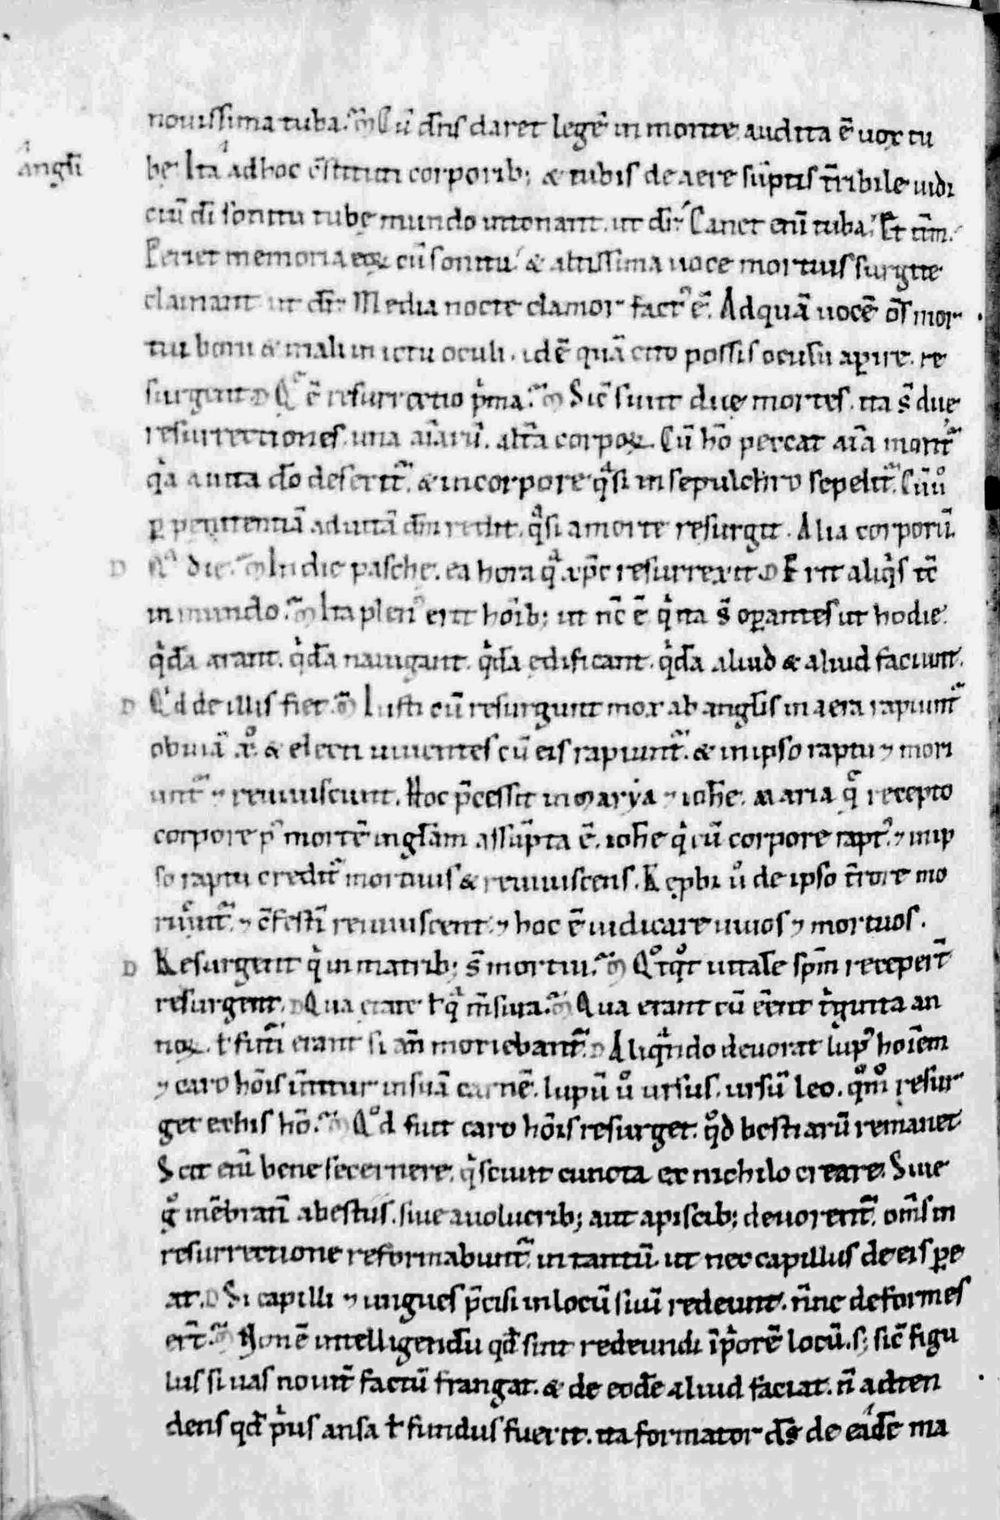 nouissima tuba. M̃ Cũ dñs daret legẽ in monte audita ẽ uox tu
angl̃i
bę. Ita adhoc c̃stituti corporib; & tubis de aere sũptis t̃ribile iudi
ciũ dĩ sonitu tubę mundo intonant. ut dr̃. Canet eniĩ tuba. Et tm̃.
Periet memoria eoꝝ cũ sonitu. & altissima uoce mortuis surgite
clamant ut dr̃. Media nocte clamor factꝰ ẽ. Ad quã uocẽ õs mor
tui boni & mali in ictu oculi. idẽ quã cito possis oculũ aꝑire. re
surgent. D Q̃ ẽ resurrectio p̾ma. M̃ Sic̃ sunt due mortes. ita s̃ due
resurrectiones. una aĩarũ. alt̃a corpoꝝ. Cũ hõ peccat aĩa morit̃
q̾a a uita dõ deserit̃. & in corpore q̾si in sepulchro sepelit̃. Cũ ů
ꝑ penitentiã ad uitã dñm redit. q̾si a morte resurgit. Alia corporũ.
D Qͣ die. M̃ In die pasche. ea hora qͣ xp̃c resurrexit. D Erit aliq̾s tc̃
in mundo. M̃ Ita plenꝰ erit hoĩb; ut nc̃ ẽ q̾ ita s̃ oꝑantes ut hodie.
q̾dã arant. q̾dã nauigant. q̾dã edificant. q̾dã aliud & aliud faciunt.
D Q̾d de illis fiet. M̃ Iusti cũ resurgunt mox ab angl̃is in aera rapiunt̃
obuiã xͦ. & electi uiuentes cũ eis rapiunt̃. & in ipso raptu ⁊ mori
unt̃ ⁊ reuiuiscunt. Hoc p̃cessit in marya ⁊ ioh̃e. Maria q̃ recepto
corpore pꝰ mortẽ in gl̃am assũpta ẽ. ioh̃e q̾ cũ corpore raptꝰ. ⁊ in ip
so raptu credit̃ mortuus & reuiuiscens. Rep̱bi ů de ipso t̃rore mo
riũt̃. ⁊ c̃festĩ reuiuiscent. ⁊ hoc ẽ iudicare uiuos ⁊ mortuos.
D Resurgent q̾ in matrib; s̃ mortui. M̃ Qͦtqͦt uitalẽ spm̃ recepert̃
resurgent. D Qua etate ł qͣ m̃sura. M̃ Qua erant cũ eẽnt t̾ginta an
noꝝ. ł futr̃i erant si añ moriebant̃. D Aliqͣndo deuorat lupꝰ hoĩem
⁊ caro hoĩs ũtitur in suã carnẽ. lupũ ů ursus. ursũ leo. qͦmͦ resur
get ex his hõ. M̃ Qͦd fuit caro hoĩs resurget. qͦd bestiarũ remanet.
Scit eniĩ bene secernere. q̾ sciuit cuncta ex nichilo creare. Siue
gͦ mẽbratĩ a bestiis. siue a uolucrib; aut a piscib; deuorent̃. om̃s in
resurrectione reformabunt̃. in tantũ. ut nec capillus de eis ꝑe
at. D Si capilli ⁊ ungues p̃cisi in locũ suũ redeunt. ñne deformes
ert̃. M̃ Non ẽ intelligendũ qd̃ sint redeundi ĩ p̾orẽ locũ. s; sic̃ figu
lus si uas nouit̃ factũ frangat. & de eodẽ aliud faciat. ñ adten
dens qd̃ p̾us ansa ł fundus fuerit. ita formator dš de eadẽ ma